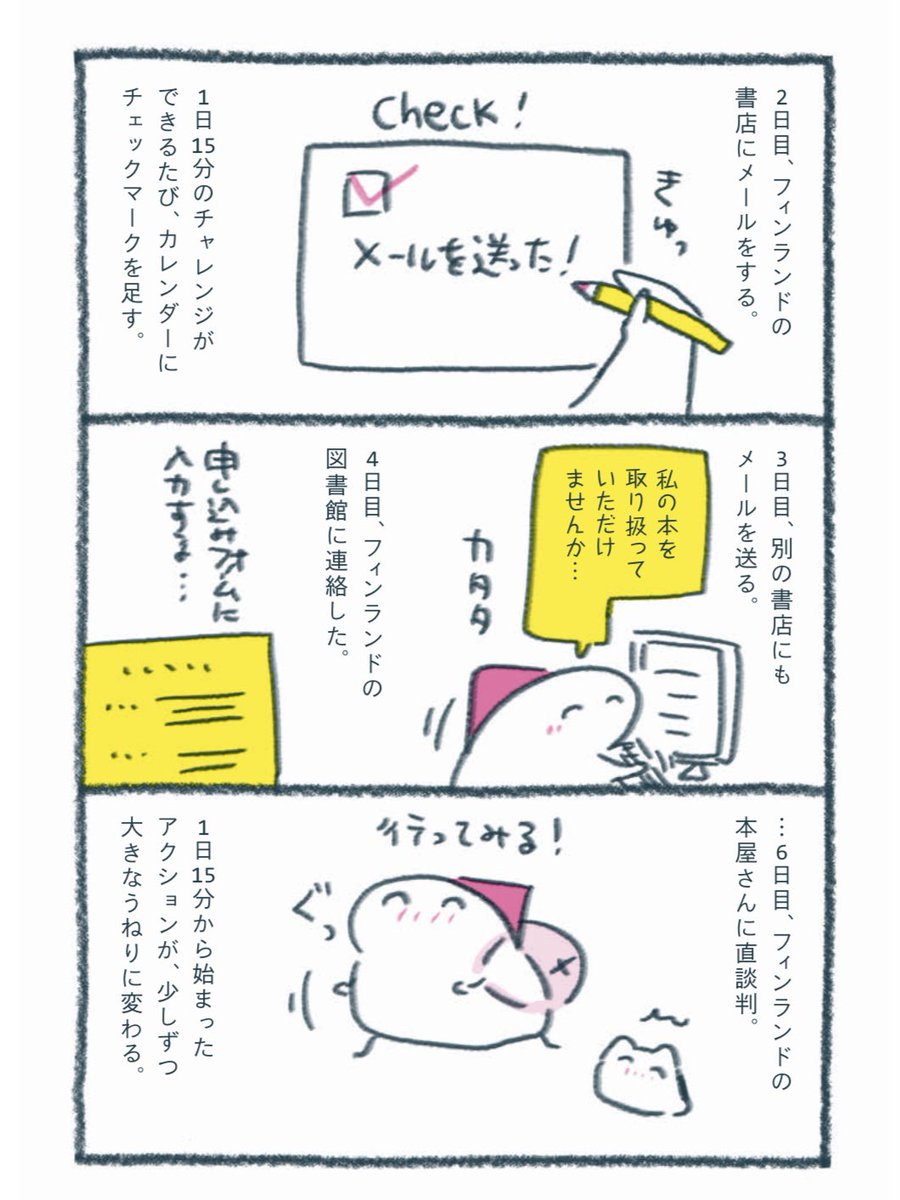 2日目、フィンランドの
書店にメールをする。
きゅっ
Check!
メールを送った!
1日15分のチャレンジが
できるたび、カレンダーに
チェックマークを足す。
3日目、別の書店にも
メールを送る。
私の本を
取り扱って
いただけ
ませんか…
カタタ
4日目、フィンランドの
図書館に連絡した。
申し込みフォームに
入力する…
…6日目、フィンランドの
本屋さんに直談判。
行ってみる!
ぐっ
1日15分から始まった
アクションが、少しずつ
大きなうねりに変わる。